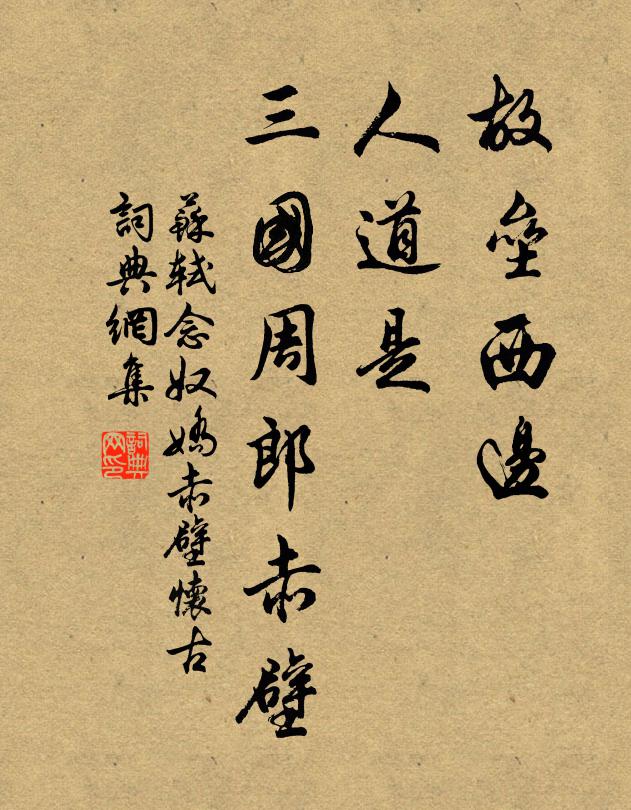 故壘西邊
人道是
三國周郎赤壁
蘇軾念奴嬌赤壁懷古
詞典網集
詞典
网印